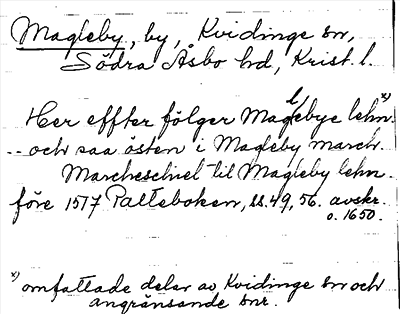 Magleby, by, Kvidinge sn,
Södra Åsbo hd, Krist. l.
Her effter fölger Maglebye lehn. x)
-- och saa östen i Magleby march.
Marcheschiel til Magleby lehn.
före 1577 Palteboken, ss. 49, 56. avskr.
o. 1650.
x) omfattade delar av Kvidinge sn och
angränsande snr.